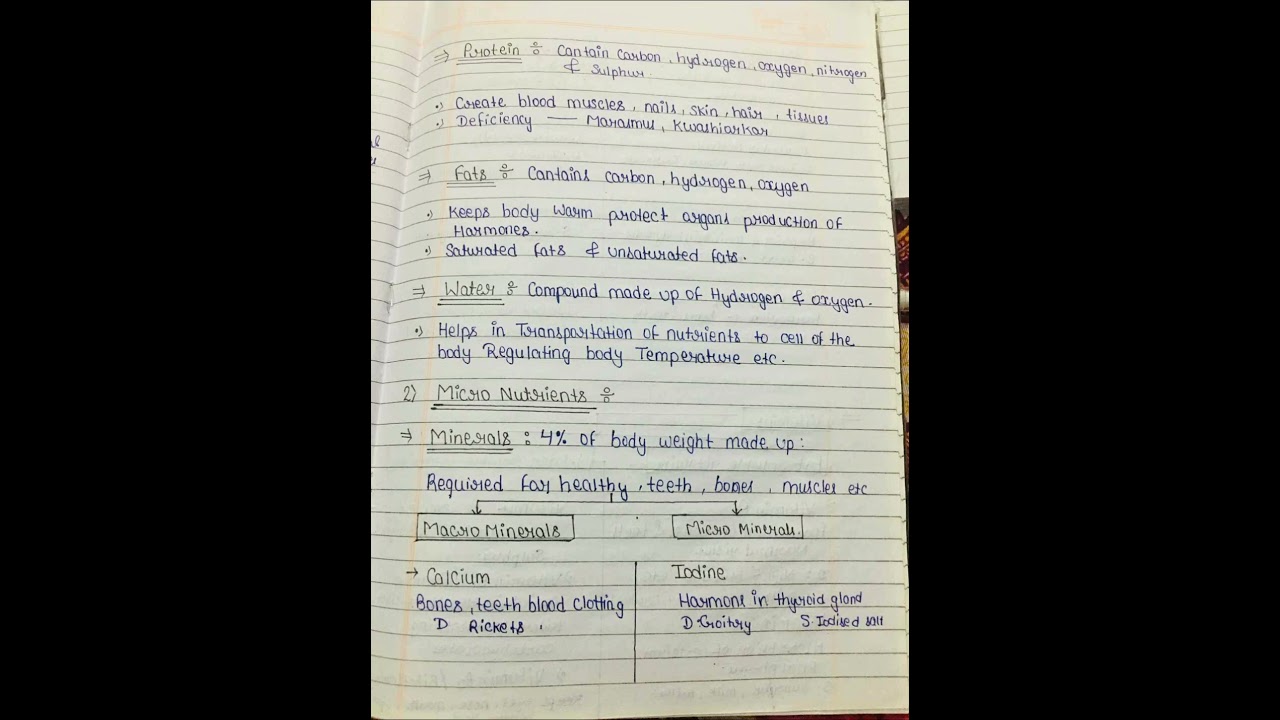 ⇒ Protein ÷ Contain Carbon, hydrogen, oxygen, nitrogen
& Sulphur.
•) Create blood muscles, nails, skin, hair, tissues
•) Deficiency — Marasmus, Kwashiarkar
⇒ Fats ÷ Contains carbon, hydrogen, oxygen
•) Keeps body warm protect organs production of
Harmones.
•) Saturated fats & unsaturated fats.
⇒ Water ÷ Compound made up of Hydrogen & oxygen.
•) Helps in Transportation of nutrients to cell of the
body Regulating body Temperature etc.
2) Micro Nutrients ÷
⇒ Minerals : 4% of body weight made up:
Required for healthy, teeth, bones, muscles etc
Macro Minerals
Micro Minerals.
→ Calcium
Bones, teeth blood clotting
D Rickets.
Iodine
Harmone in thyroid gland
D Goitry S. Iodised salt